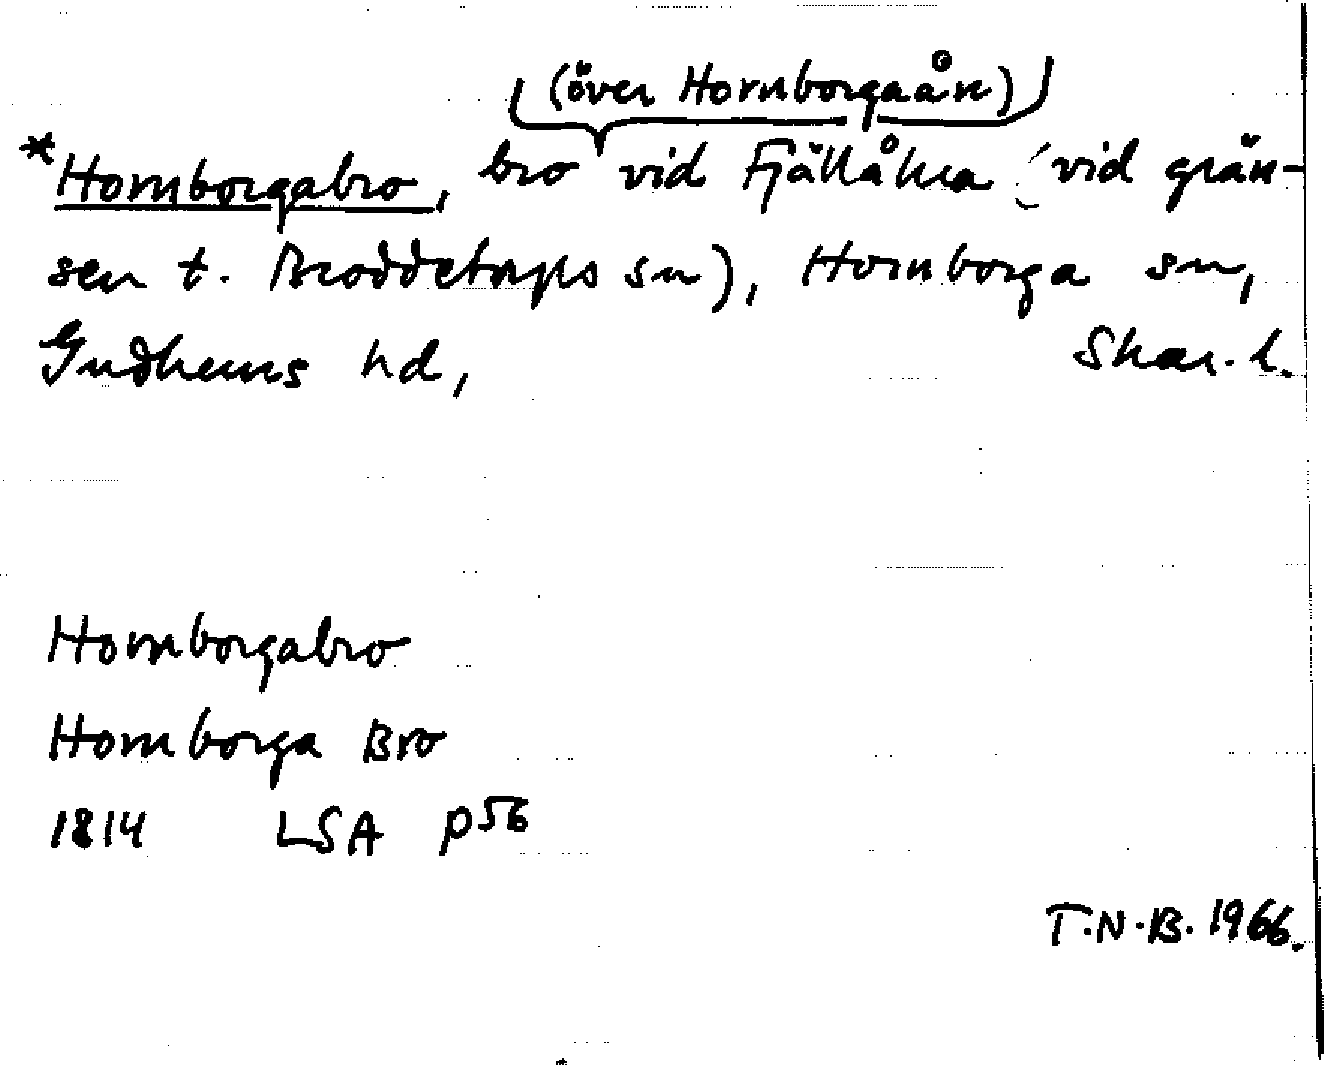 (över Hornborgaån)
*Hornborgabro, bro vid Fjällåkra (vid grän-
sen t. Broddetorps sn), Hornborga sn,
Gudhems hd, Skar. l.
Hornborgabro
Hornborga Bro
1814 LSA P56
T.N.B. 1966.